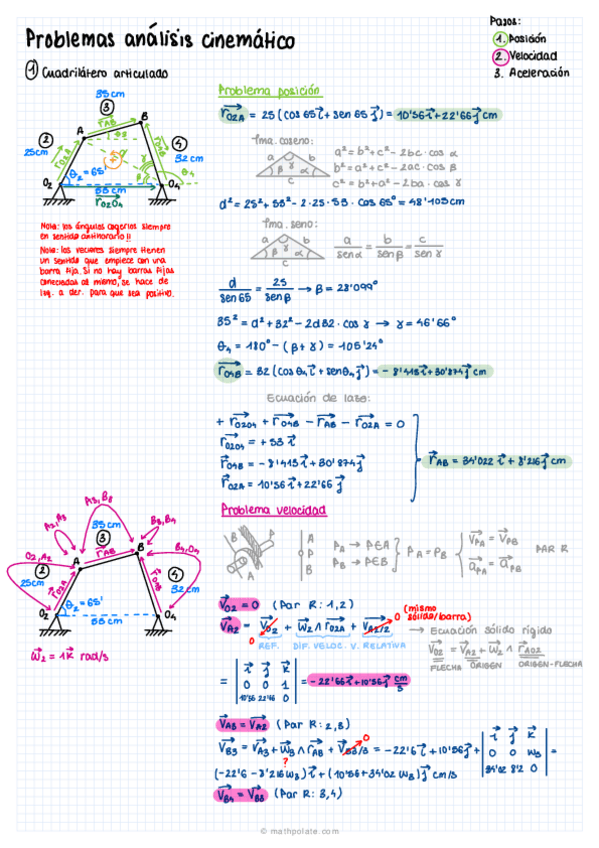 Problemas análisis cinemático
Pasos:
1. Posición
2. Velocidad
3. Aceleración
1 Cuadrilátero articulado
35 cm
3
B
A
r_AB
2
25cm
r_O2A
θ2 = 65°
4
32 cm
O2
O4
55 cm
r_O2O4
Nota: los ángulos cogerlos siempre
en sentido antihorario!!
Nota: los vectores siempre tienen
un sentido que empiece con una
barra fija. Si no hay barras fijas
conectadas al mismo, se hace de
izq. a der. para que sea positivo.
Problema posición
r_O2A = 25 (cos 65 i + sen 65 j) = 10'56 i + 22'66 j cm
Tma. coseno:
a² = b² + c² - 2bc · cos α
b² = a² + c² - 2ac · cos β
c² = b² + a² - 2ba · cos γ
d² = 25² + 55² - 2·25·55 · cos 65° = 48'103 cm
Tma. seno:
a / sen α = b / sen β = c / sen γ
d / sen 65 = 25 / sen β → β = 28'099°
35² = d² + 32² - 2d32 · cos γ → γ = 46'66°
θ4 = 180° - (β + γ) = 105'24°
r_O4B = 32 (cos θ4 i + sen θ4 j) = - 8'415 i + 30'874 j cm
Ecuación de lazo:
+ r_O2O4 + r_O4B - r_AB - r_O2A = 0
r_O2O4 = + 55 i
r_O4B = - 8'415 i + 30'874 j
r_O2A = 10'56 i + 22'66 j
r_AB = 34'022 i + 8'216 j cm
Problema velocidad
A3, B3
A2, A3
35 cm
B3, B4
3
B
O2, A2
A
r_AB
B4, O4
2
25cm
r_O2A
4
32 cm
r_O4B
θ2 = 65°
O2
O4
55 cm
ω2 = 1 k rad/s
B
A
P
A
P
B
P_A → P ∈ A
P_B → P ∈ B
P_A = P_B
v_PA = v_PB
a_PA = a_PB
PAR R
v_O2 = 0 (Par R: 1,2)
v_A2 = v_O2 + ω2 ∧ r_O2A + v_A2/2 0 (mismo sólido/barra)
0
REF. DIF. VELOC. V. RELATIVA
→ Ecuación sólido rígido
FLECHA ORIGEN ORIGEN-FLECHA
= | i j k
0 0 1
10'56 22'66 0 | = - 22'66 i + 10'56 j cm/s
v_A3 = v_A2 (Par R: 2,3)
v_B3 = v_A3 + ω3 ∧ r_AB + v_B3/3 0 = - 22'6 i + 10'56 j + | i j k
0 0 ω3
34'02 8'2 0 | =
?
(-22'6 - 8'216 ω3) i + (10'56 + 34'02 ω3) j cm/s
v_B4 = v_B3 (Par R: 3,4)
© mathpolate.com